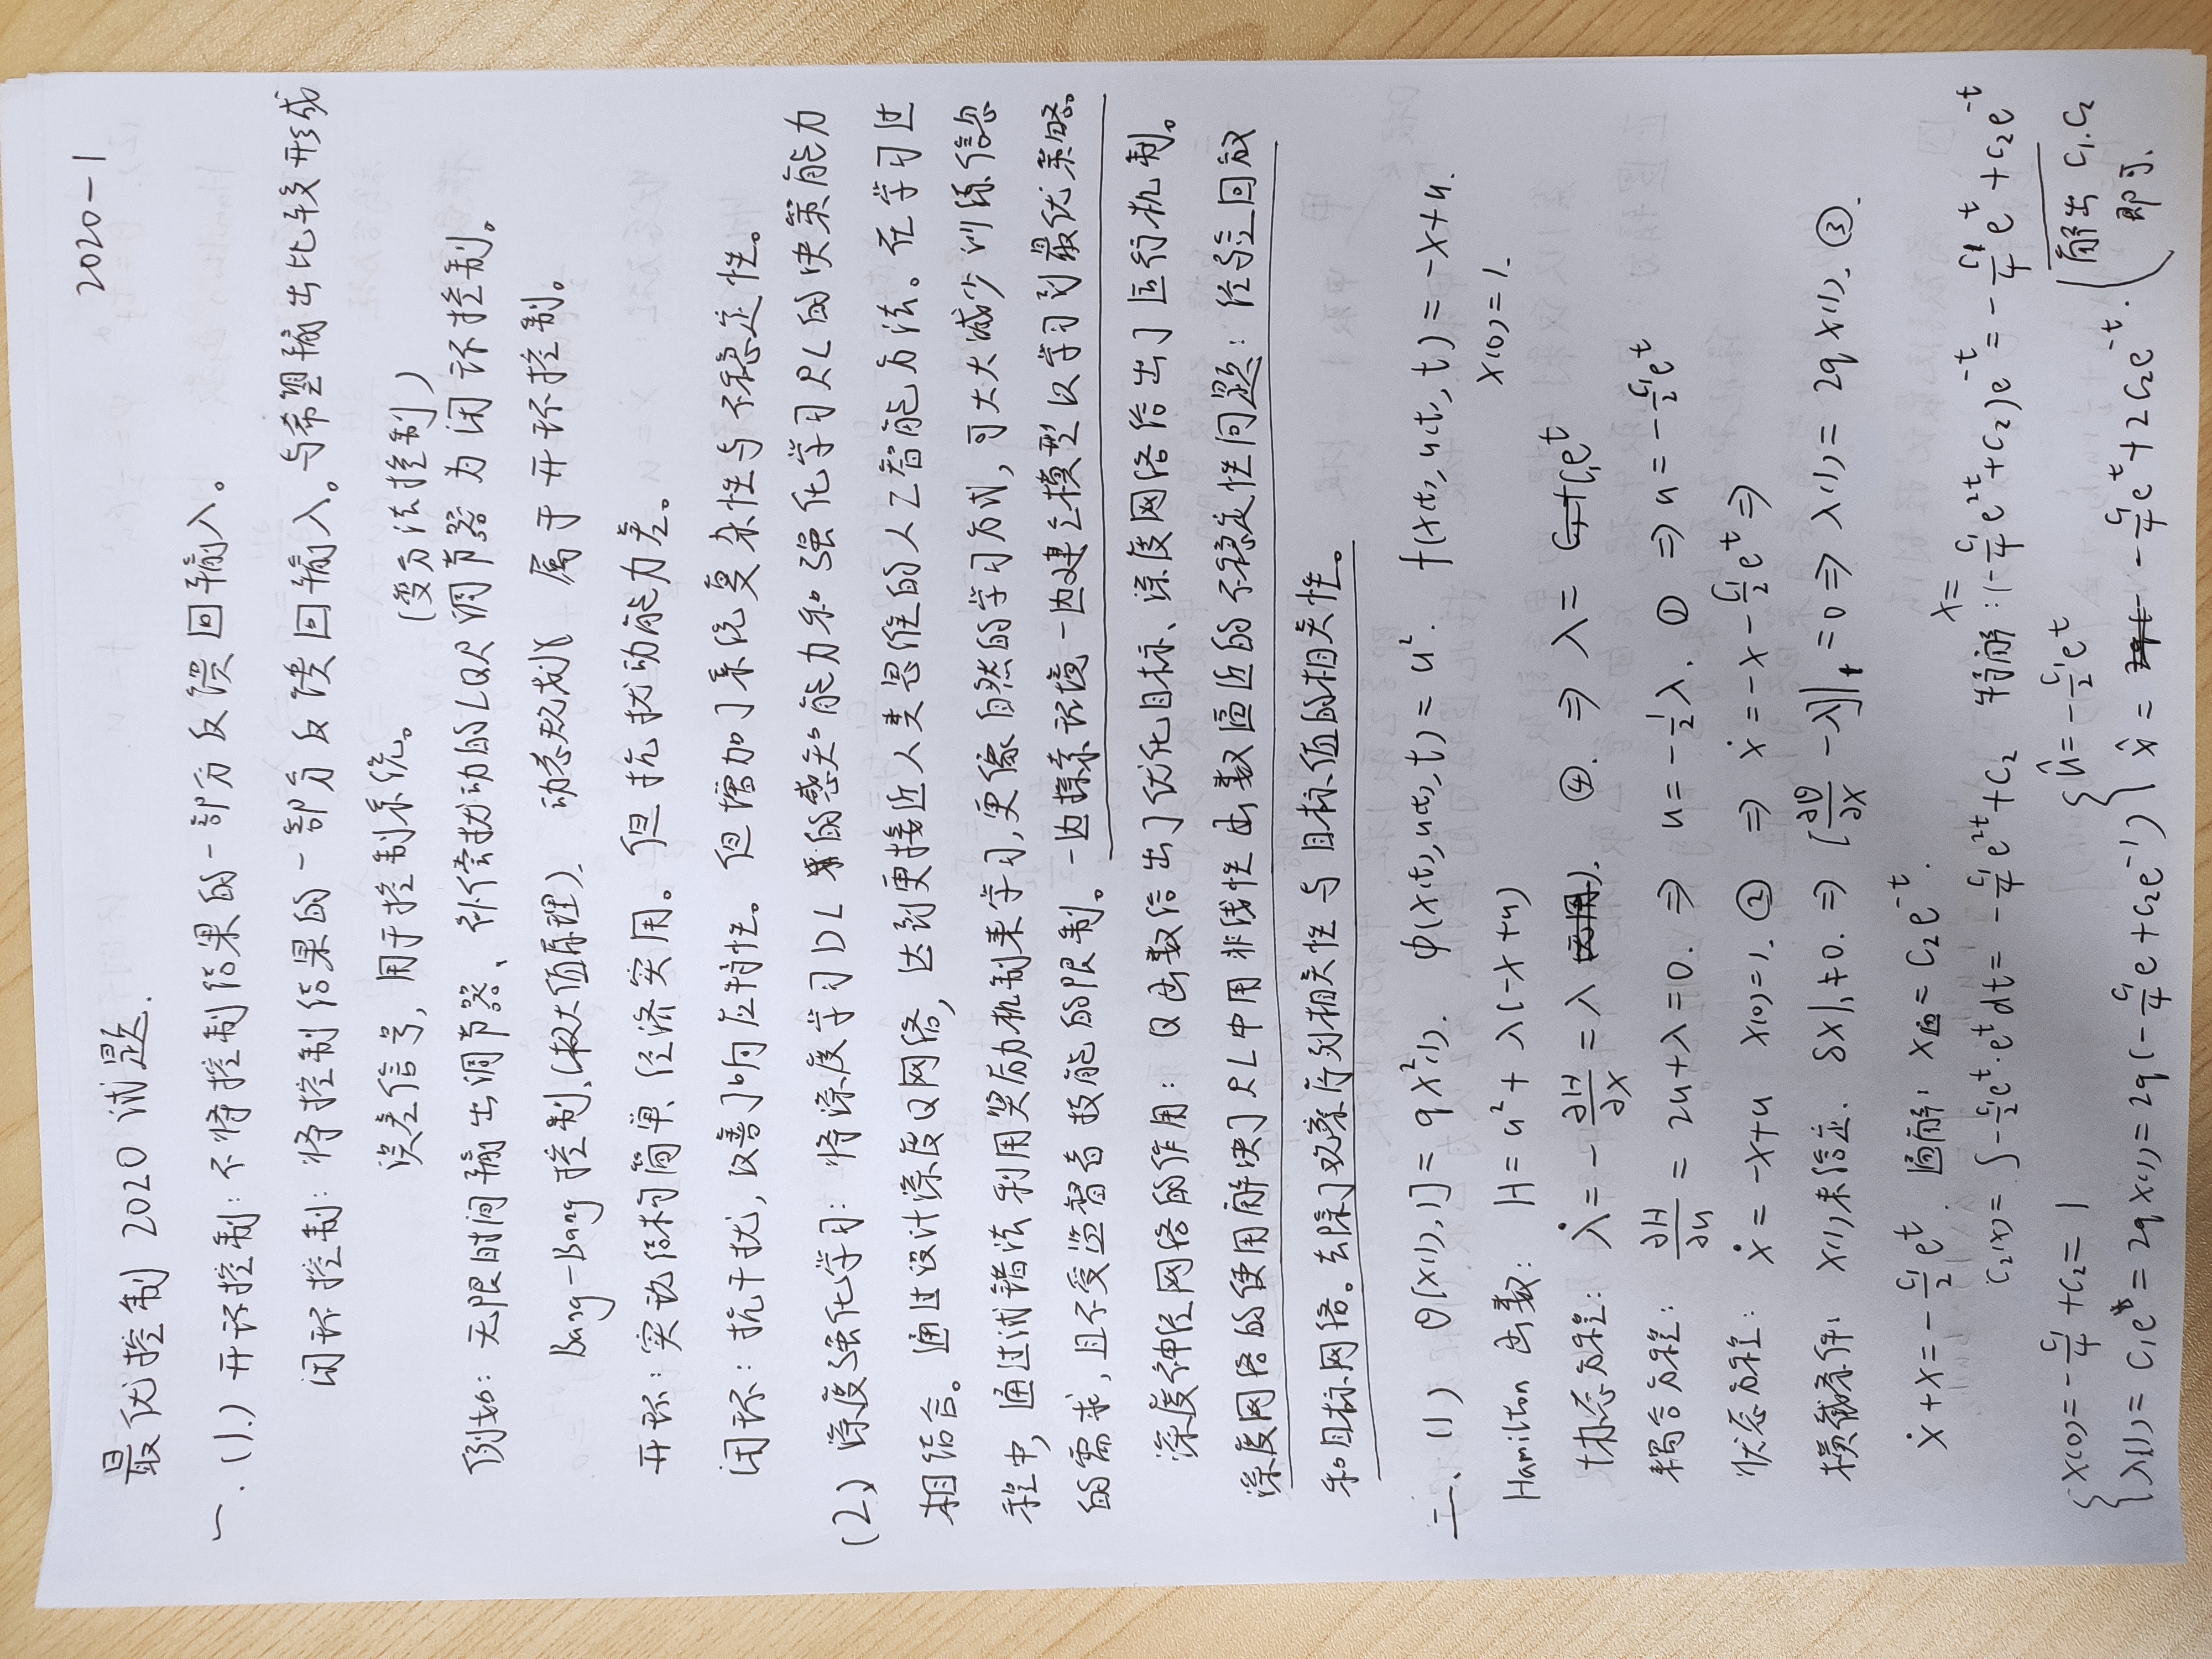 2020-1
最优控制 2020 试题.
一. (1.) 开环控制: 不将控制结果的一部分反馈回输入。
闭环控制: 将控制结果的一部分反馈回输入。与希望输出比较形成
误差信号, 用于控制系统。
(变分法控制)
例如: 无限时间输出调节器、补偿扰动的LQR调节器为闭环控制。
Bang-Bang 控制、(极大值原理)、动态规划 属于开环控制。
开环: 实现结构简单、经济实用。但抗扰动能力差。
闭环: 抗干扰, 改善响应特性。但增加了系统复杂性与不稳定性。
(2) 深度强化学习: 将深度学习DL的感知能力和强化学习RL的决策能力
相结合。通过设计深度Q网络, 达到更接近人类思维的人工智能方法。在学习过
程中, 通过试错法利用奖励机制来学习, 更像自然的学习方式, 可大大减少训练信息
的需求, 且不受监督者技能的限制。一边探索环境一边建立模型以学习到最优策略。
深度神经网络的作用: Q函数给出了优化目标、深度网络给出了运行机制。
深度网络的使用解决了RL中用非线性函数逼近的不稳定性问题: 经验回放
和目标网络。去除了观察序列相关性与目标值的相关性。
二、(1) θ[x(1),1] = qx²(1). φ(x(t),u(t),t) = u². f(x(t),u(t),t) = -x+u.
x(0)=1.
Hamilton 函数: H = u² + λ(-x+u)
协态方程: λ̇ = -∂H/∂x = λ ④. ⇒ λ = c₁eᵗ
耦合方程: ∂H/∂u = 2u+λ = 0. ⇒ u = -½λ. ① ⇒ u = -c₁/2 eᵗ
状态方程: ẋ = -x+u x(0)=1. ② ⇒ ẋ = -x - c₁/2 eᵗ ⇒
横截条件: x(1)未给定. δx|₁≠0. ⇒ [∂θ/∂x - λ]|₁ = 0 ⇒ λ(1) = 2qx(1). ③.
ẋ+x = -c₁/2 eᵗ. 通解: x = c₂e⁻ᵗ.
x=
c₂(x) = ∫ -c₁/2 eᵗ·eᵗdt = -c₁/4 e²ᵗ + c₂ 特解: (-c₁/4 e²ᵗ + c₂)e⁻ᵗ = -c₁/4 eᵗ + c₂e⁻ᵗ
{ x(0) = -c₁/4 + c₂ = 1
λ(1) = c₁e = 2qx(1) = 2q(-c₁/4 e + c₂e⁻¹)
{ û = -c₁/2 eᵗ
x̂ = -c₁/4 eᵗ + 2c₂e⁻ᵗ.
(解出 c₁.c₂
即可.